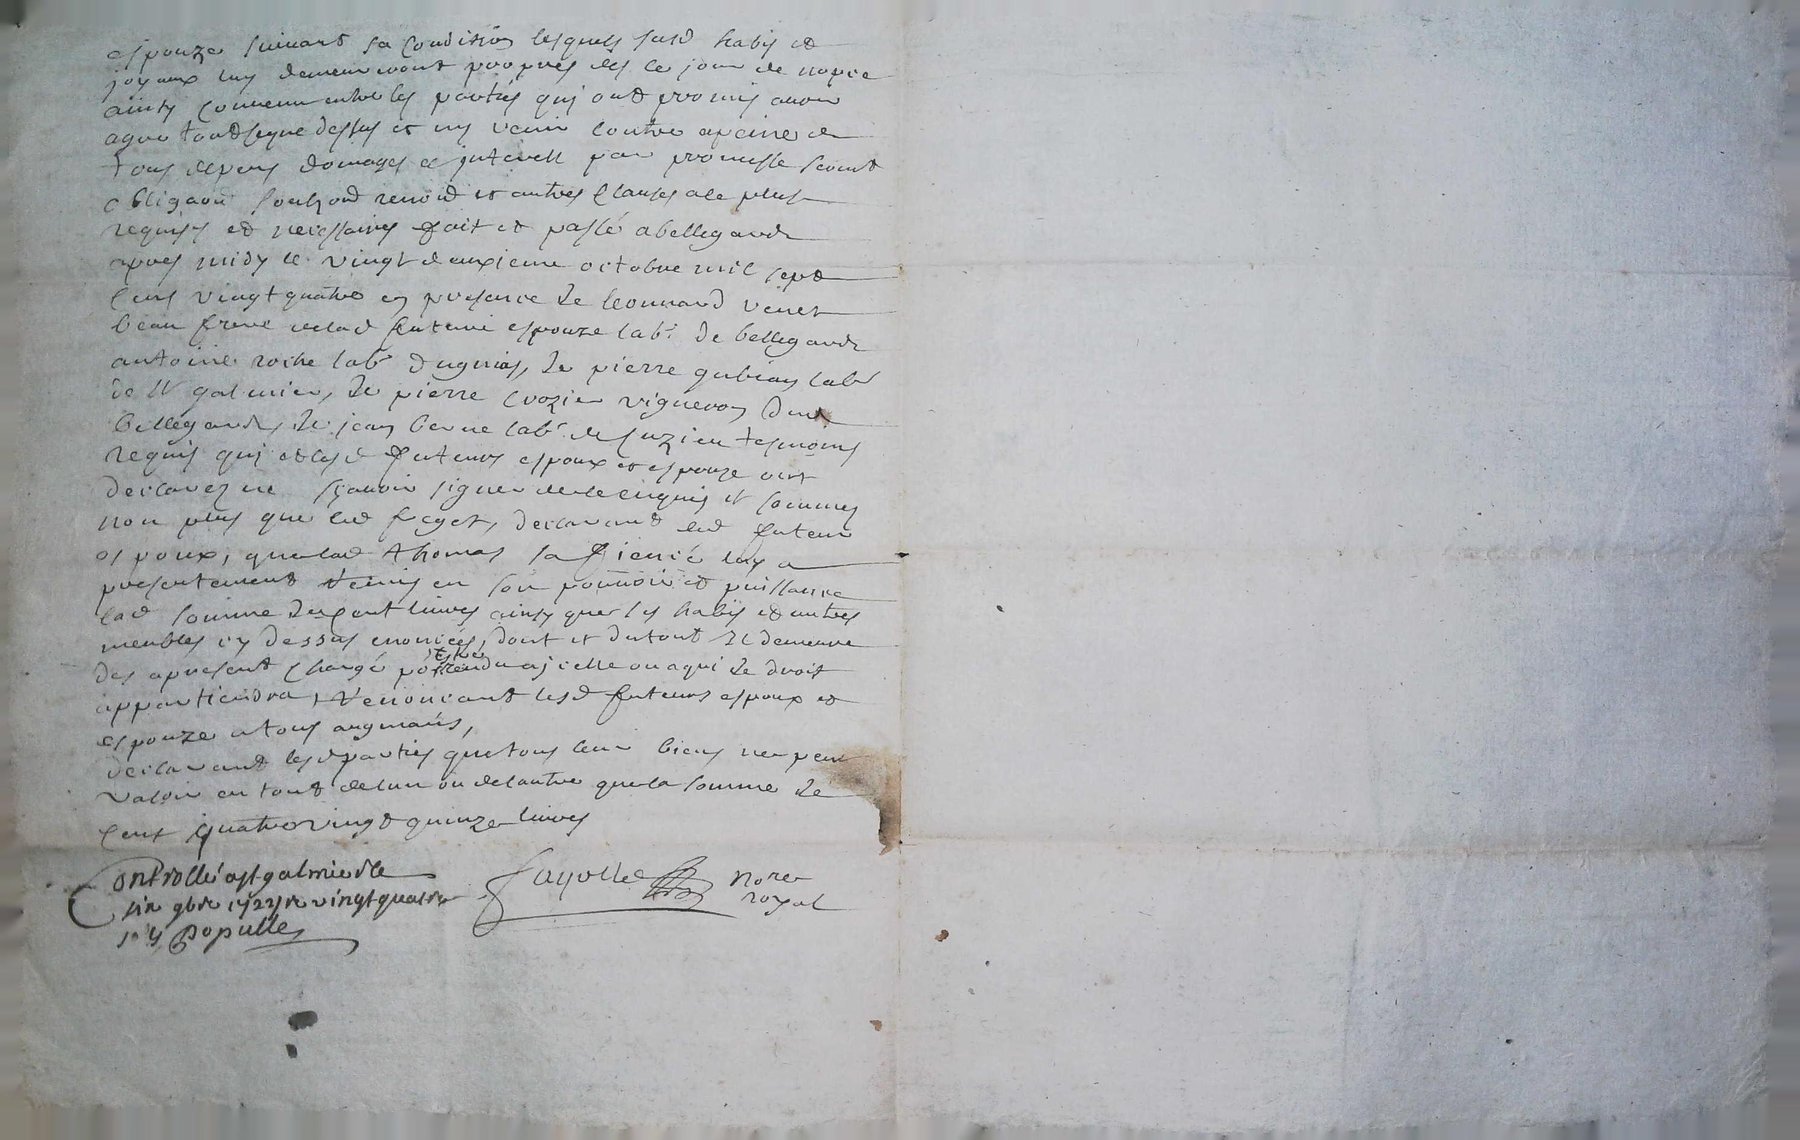 espouze suivant sa condition lesquels susd habis et
joyaux luy demeureront propres des le jour de nopce
ainsy convenu entre les parties qui ont promis avoir
agre tout ce que dessus et ny venir contre apeine de
tous depens domages et interest par promesse serment
obligaon renond et autres clauses ale plus
requises et necessaires fait et passé abellegarde
apres midy le vingt deuxieme octobre mil sept
cens vingt quatre en presence de leonnard venet
beau frere de lad future espouze labr de bellegarde
antoine roche labr de pierre gubian labr
de St galmier, de pierre crozier vigneron dud
bellegarde, de jean berne labr de cuzieu tesmoins
requis qui et lesd futeurs espoux et espouze ont
declarez ne sçavoir signer de ce enquis et sommes
non plus que led declarant led futeur
espoux, que lad thomas sa fiencé luy a
presentement remis en son pouvoir et puissance
lad somme de cent livres ainsy que les habis et autres
meubles cy dessus enoncées, dont et du tout il demeure
des apresent chargé po estre rendu a icelle ou a qui de droit
appartiendra, renoncant lesd futeurs espoux et
espouze a tous augmans,
declarant lesd parties que tous leur biens ne peut
valoir en tout de lun ou de lautre que la somme de
cent quatre vingt quinze livres
Controllé a st galmier le
six 9bre 1724 vingt quatre
Populle
Fayolle nore
royal